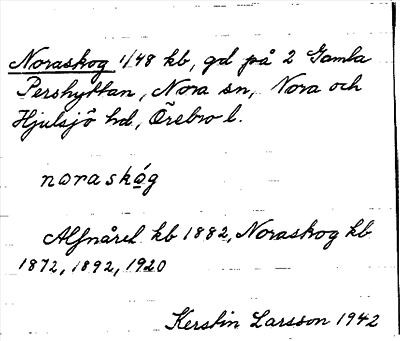 Noraskog 1/48 kb, gd på 2 Gamla
Pershyttan, Nora sn, Nora och
Hjulsjö hd, Örebro l.
noraskóg
Alfnårel kb 1882, Noraskog kb
1872, 1892, 1920
Kerstin Larsson 1942